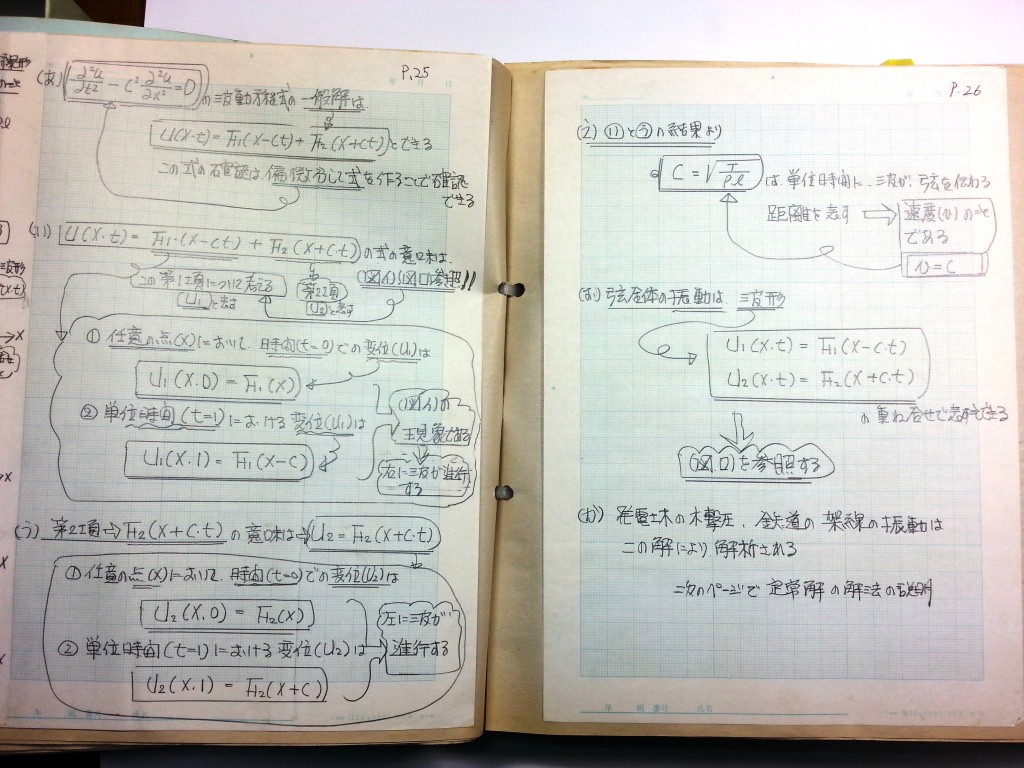 P.25
(あ) ∂²u/∂t² - C² ∂²u/∂x² = 0 の波動方程式の一般解は、
U(x・t) = F1(x-ct) + F2(x+ct) とできる
この式の確認は、偏微分して式を作ることで確認
できる
(い) U(x・t) = F1・(x-ct) + F2(x+c・t) の式の意味は、
(図イ)(図ロ)参照!!
この第1項について考える
(U1)と表す
第2項
(U2)と表す
① 任意の点(x)において、時間(t=0)での変位(U1)は
U1(x・0) = F1(x)
② 単位時間(t=1)における変位(U1)は
U1(x・1) = F1(x-c)
(図イ)の
現象である
右に波が進行
する
(う) 第2項→F2(x+c・t)の意味は→U2=F2(x+c・t)
① 任意の点(x)において、時間(t=0)での変位(U2)は
U2(x・0) = F2(x)
② 単位時間(t=1)における変位(U2)は
U2(x・1) = F2(x+c)
左に波が
進行する
P.26
(え) ⑪と⑦の結果より
は、単位時間に、波が弦を伝わる
距離を表す ⇒ 速度(v)の
である
v=c
(お) 弦全体の振動は、波形
U1(x・t) = F1(x-c・t)
U2(x・t) = F2(x+c・t)
の重ね合せで表すことができる
(図.ロ)を参照する
(か) 発電土木の水撃圧、鉄道の架線の振動は
この解により解析される
次のページで定常解の解法の説明
年 組 番号 氏名